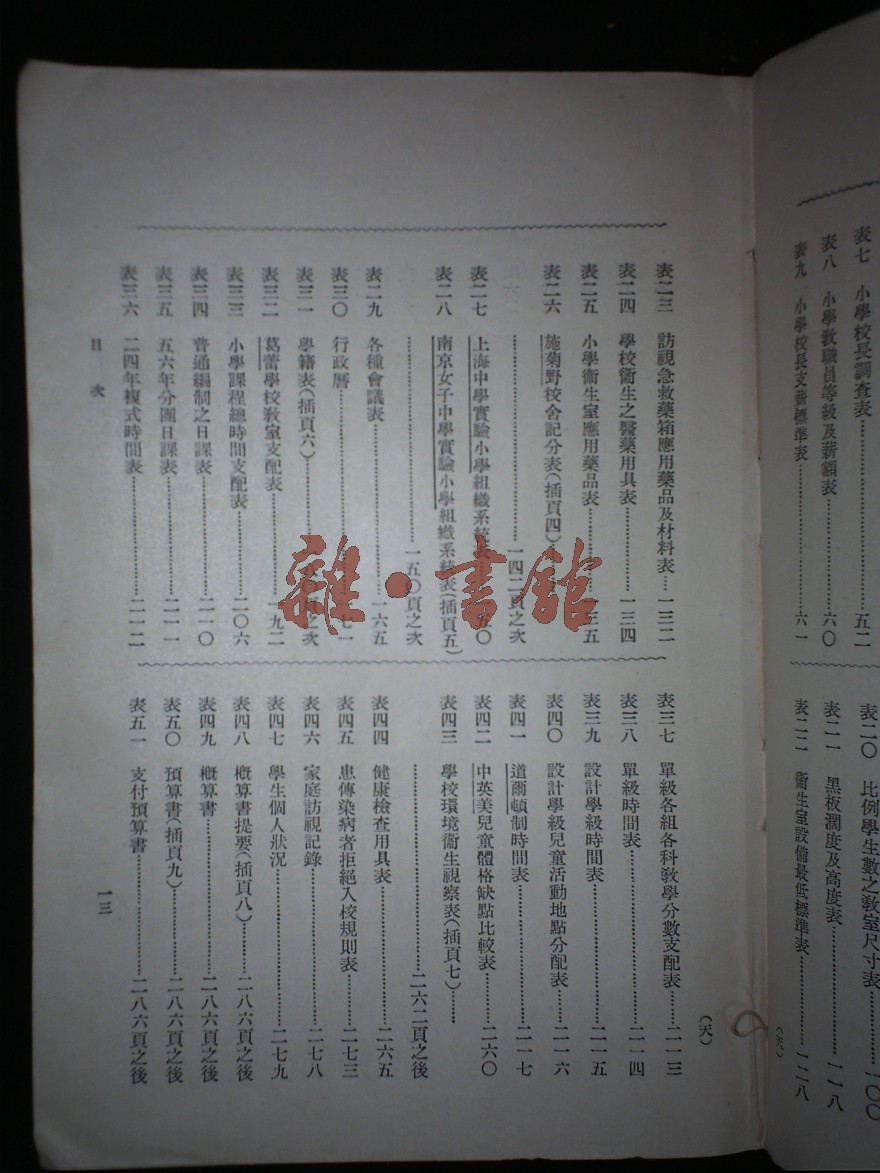 表七　小學校長調查表…………五二
表八　小學教職員等級及薪額表……六〇
表九　小學校長支薪標準表………六一
表二〇　比例學生數之教室尺寸表…一〇〇
表二一　黑板濶度及高度表………一一八
表二二　衞生室設備最低標準表……一二八
表二三　訪視急救藥箱應用藥品及材料表…一三二
表二四　學校衞生之醫藥用具表………一三四
表二五　小學衞生室應用藥品表………三五
表二六　施菊野校舍記分表(插頁四)…
………………一四二頁之次
表二七　上海中學實驗小學組織系統表…五〇
表二八　南京女子中學實驗小學組織系統表(插頁五)
………………一五〇頁之次
表二九　各種會議表………………一六五
表三〇　行政曆………………七一
表三一　學籍表(插頁六)………頁之次
表三二　葛蕾學校教室支配表………一九二
表三三　小學課程總時間支配表………二〇六
表三四　普通編制之日課表………二一〇
表三五　五六年分團日課表………二一一
表三六　二四年複式時間表………二一二
表三七　單級各組各科教學分數支配表……二一三
表三八　單級時間表………………二一四
表三九　設計學級時間表………………二一五
表四〇　設計學級兒童活動地點分配表……二一六
表四一　道爾頓制時間表………………二一七
表四二　中英美兒童體格缺點比較表………二六〇
表四三　學校環境衞生視察表(插頁七)……
………………二六二頁之後
表四四　健康檢查用具表………………二六五
表四五　患傳染病者拒絕入校規則表………二七三
表四六　家庭訪視記錄………………二七八
表四七　學生個人狀況………………二七九
表四八　概算書提要(插頁八)………二八六頁之後
表四九　概算書………………二八六頁之後
表五〇　預算書(插頁九)………二八六頁之後
表五一　支付預算書………………二八六頁之後
(天)
目次
一三
雜·書館